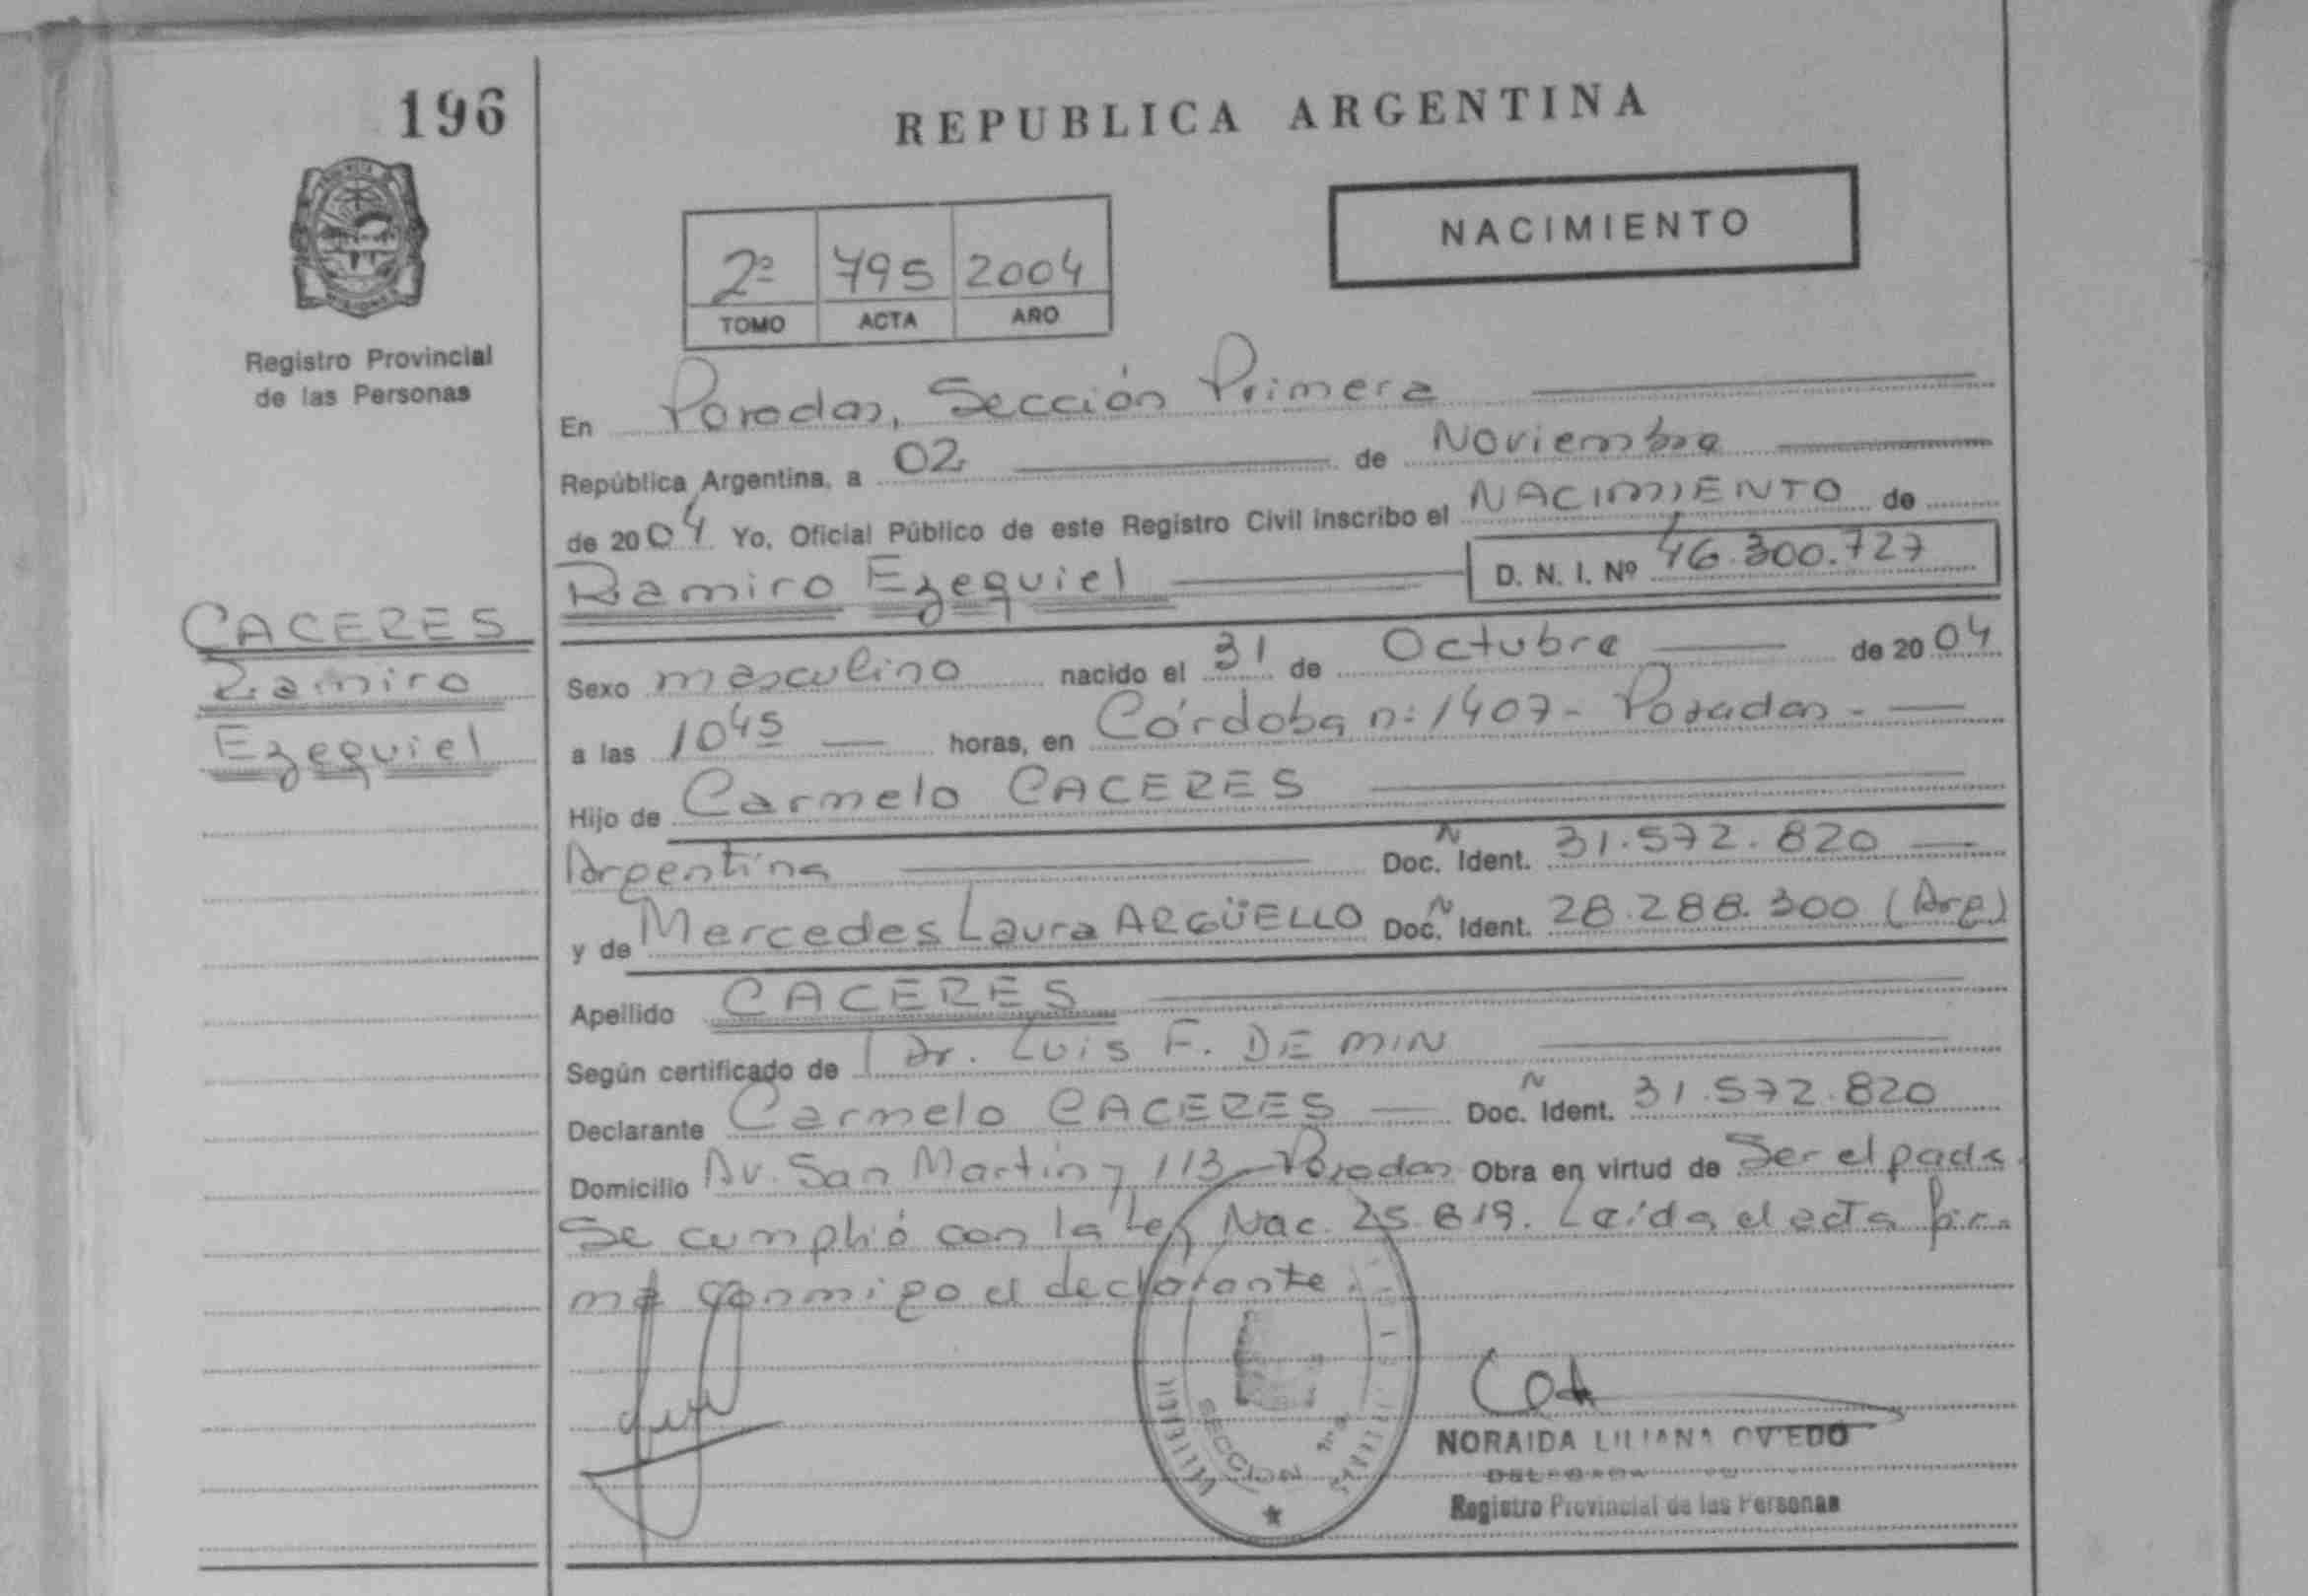 196
REPUBLICA ARGENTINA
NACIMIENTO
2º 795 2004
TOMO ACTA AÑO
Registro Provincial
de las Personas
En Posadas, Sección Primera
República Argentina, a 02 de Noviembre
de 2004 Yo, Oficial Público de este Registro Civil inscribo el NACIMIENTO de
Ramiro Ezequiel D. N. I. Nº 46.300.727
CACERES
Ramiro
Ezequiel
Sexo masculino nacido el 31 de Octubre de 2004
a las 10 45 horas, en Córdoba nº 1407 - Posadas -
Hijo de Carmelo CACERES
Argentina Doc. Ident. 31.572.820
y de Mercedes Laura ARGÜELLO Doc. Ident. 28.288.300 (Arg)
Apellido CACERES
Según certificado de Dr. Luis F. DE MIN
Declarante Carmelo CACERES Doc. Ident. 31.572.820
Domicilio Av. San Martín 7113 - Posadas Obra en virtud de Ser el padre
Se cumplió con la Ley Nac. 25.819. Leída el acta fir-
ma conmigo el declarante.
SECCION
NORAIDA LILIANA OVIEDO
Registro Provincial de las Personas